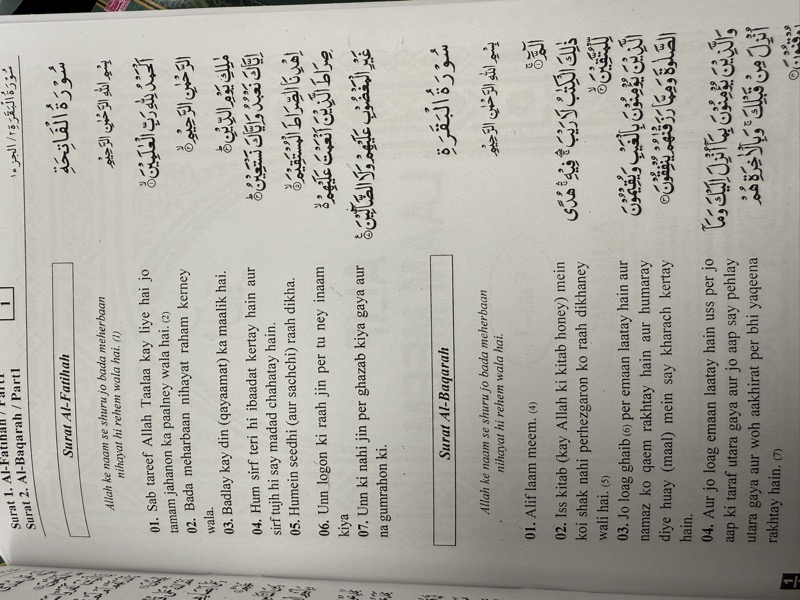 Surat 1. Al-Fatihah / Part1
Surat 2. Al-Baqarah / Part1
1
سُوْرَةُ الْبَقَرَةِ ٢ / الجزء ١
Surat Al-Fatihah
سُوْرَةُ الْفَاتِحَةِ
Allah ke naam se shuru jo bada meherbaan
nihayat hi rehem wala hai. (1)
بِسْمِ اللّٰهِ الرَّحْمٰنِ الرَّحِيْمِ
01. Sab tareef Allah Taalaa kay liye hai jo
tamam jahanon ka paalney wala hai. (2)
اَلْحَمْدُ لِلّٰهِ رَبِّ الْعٰلَمِيْنَ
02. Bada meharbaan nihayat raham kerney
wala.
الرَّحْمٰنِ الرَّحِيْمِ
03. Badlay kay din (qayaamat) ka maalik hai.
مٰلِكِ يَوْمِ الدِّيْنِ
04. Hum sirf teri hi ibaadat kertay hain aur
sirf tujh hi say madad chahatay hain.
اِيَّاكَ نَعْبُدُ وَاِيَّاكَ نَسْتَعِيْنُ
05. Humein seedhi (aur sachchi) raah dikha.
اِهْدِنَا الصِّرَاطَ الْمُسْتَقِيْمَ
06. Unn logon ki raah jin per tu ney inaam
kiya
صِرَاطَ الَّذِيْنَ اَنْعَمْتَ عَلَيْهِمْ
07. Unn ki nahi jin per ghazab kiya gaya aur
na gumrahon ki.
غَيْرِ الْمَغْضُوْبِ عَلَيْهِمْ وَلَا الضَّآلِّيْنَ
Surat Al-Baqarah
سُوْرَةُ الْبَقَرَةِ
Allah ke naam se shuru jo bada meherbaan
nihayat hi rehem wala hai.
بِسْمِ اللّٰهِ الرَّحْمٰنِ الرَّحِيْمِ
01. Alif laam meem. (4)
الٓمّٓ
02. Iss kitab (kay Allah ki kitab honey) mein
koi shak nahi perhezgaron ko raah dikhaney
wali hai. (5)
ذٰلِكَ الْكِتٰبُ لَا رَيْبَ فِيْهِ هُدًى
لِّلْمُتَّقِيْنَ
03. Jo loag ghaib (6) per emaan laatay hain aur
namaz ko qaem rakhtay hain aur humaray
diye huay (maal) mein say kharach kertay
hain.
الَّذِيْنَ يُؤْمِنُوْنَ بِالْغَيْبِ وَيُقِيْمُوْنَ
الصَّلٰوةَ وَمِمَّا رَزَقْنٰهُمْ يُنْفِقُوْنَ
04. Aur jo loag emaan laatay hain uss per jo
aap ki taraf utara gaya aur jo aap say pehlay
utara gaya aur woh aakhirat per bhi yaqeena
rakhtay hain. (7)
وَالَّذِيْنَ يُؤْمِنُوْنَ بِمَآ اُنْزِلَ اِلَيْكَ وَمَآ
اُنْزِلَ مِنْ قَبْلِكَ وَبِالْاٰخِرَةِ هُمْ
1